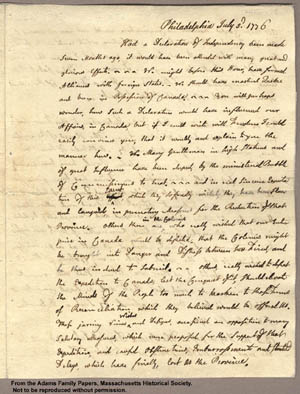 Philadelphia July 3d. 1776
Had a Declaration of Independency been made
seven Months ago, it would have been attended with many great and
glorious Effects. We might before this Hour, have formed
Alliances with foreign States. We should have mastered Quebec
and been in Possession of Canada. You will perhaps
wonder, how such a Declaration would have influenced our
Affairs, in Canada, but if I could write with Freedom I could
easily convince you, that it would, and explain to you the
manner how. Many Gentlemen in high Stations and
of great Influence have been duped, by the ministerial Bubble
of Commissioners to treat and in real, sincere Expecta-
tion of this which they so fondly wished, they have been slow
and languid, in promoting Measures for the Reduction of that
Province. Others there are in the Colonies who really wished that our Enter-
prise in Canada would be defeated, that the Colonies might
be brought into Danger and Distress between two Fires, and
be thus induced to submit. Others really wished to defeat
the Expedition to Canada, lest the Conquest of it, should elevate
the Minds of the People too much to hearken to those Terms
of Reconciliation which they believed would be offered Us.
These jarring Views, Wishes and Designs, occasioned an opposition to many
salutary Measures, which were proposed for the Support of that
Expedition, and caused Obstructions, Embarrassments and studied
Delays, which have finally, lost Us the Province.
From the Adams Family Papers, Massachusetts Historical Society.
Not to be reproduced without permission.